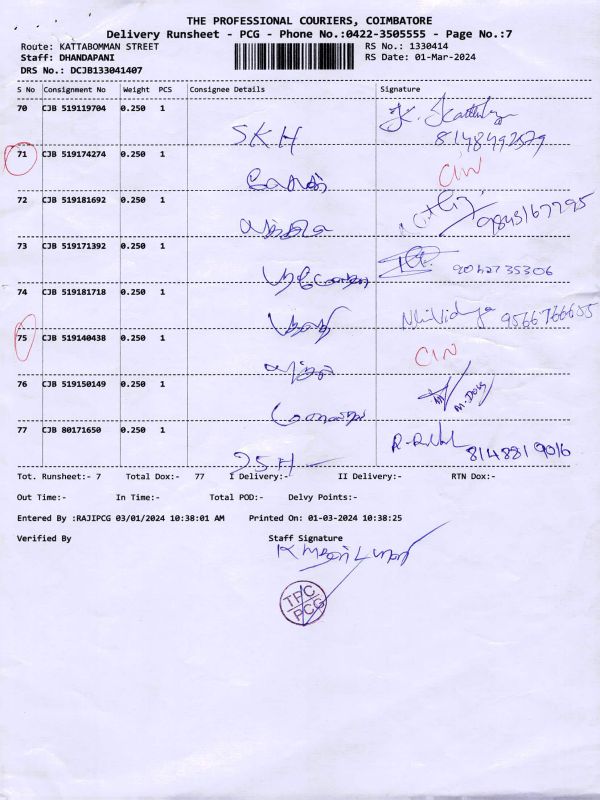 THE PROFESSIONAL COURIERS, COIMBATORE
Delivery Runsheet - PCG - Phone No.:0422-3505555 - Page No.:7
Route: KATTABOMMAN STREET RS No.: 1330414
Staff: DHANDAPANI RS Date: 01-Mar-2024
DRS No.: DCJB133041407
S No Consignment No Weight PCS Consignee Details Signature
70 CJB 519119704 0.250 1
SKH 8148492579
71 CJB 519174274 0.250 1
CIW
72 CJB 519181692 0.250 1
9843167795
73 CJB 519171392 0.250 1
9042735306
74 CJB 519181718 0.250 1
9566766655
75 CJB 519140438 0.250 1
CIW
76 CJB 519150149 0.250 1
77 CJB 80171650 0.250 1
8148819016
Tot. Runsheet:- 7 Total Dox:- 77 I Delivery:- II Delivery:- RTN Dox:-
Out Time:- In Time:- Total POD:- Delvy Points:-
Entered By :RAJIPCG 03/01/2024 10:38:01 AM Printed On: 01-03-2024 10:38:25
Verified By Staff Signature
TPC
PCG